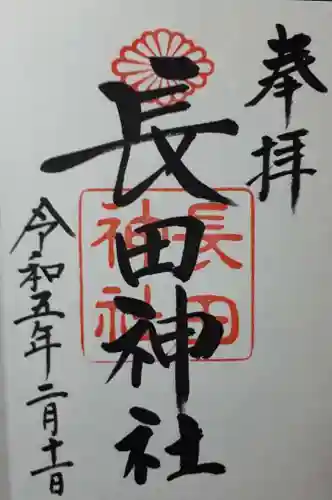 奉拝
長田神社
長田
神社
令和五年二月十一日